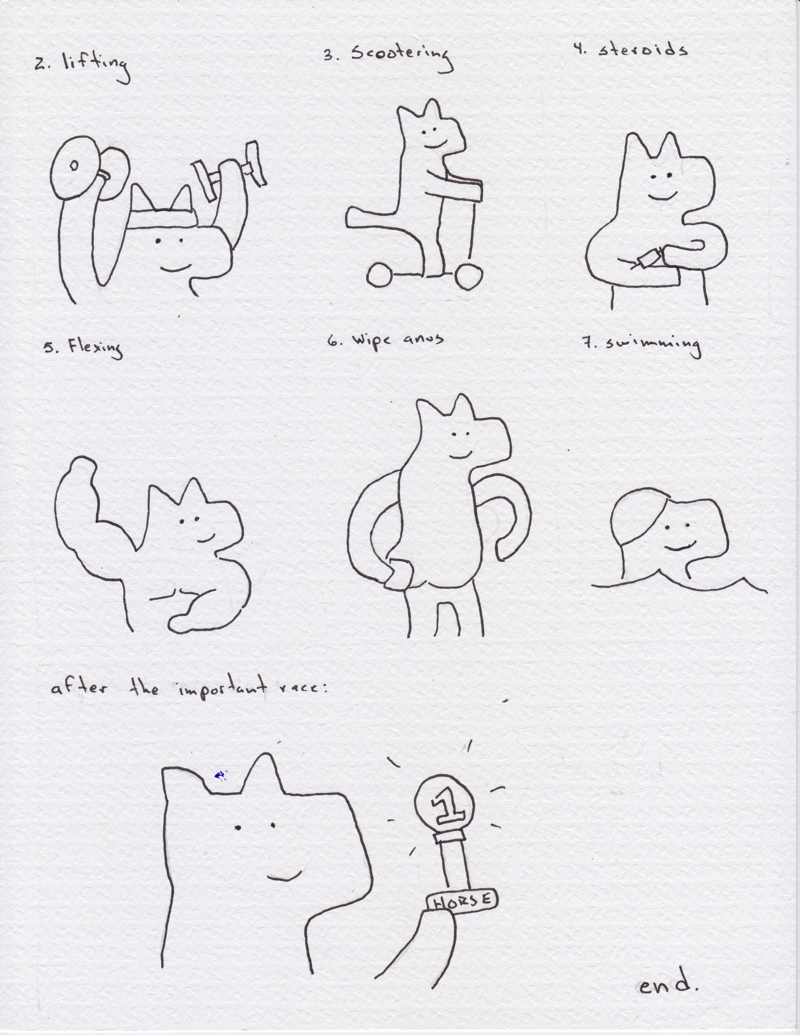 2. lifting
3. Scootering
4. steroids
5. Flexing
6. Wipe anus
7. swimming
after the important race:
1
HORSE
end.